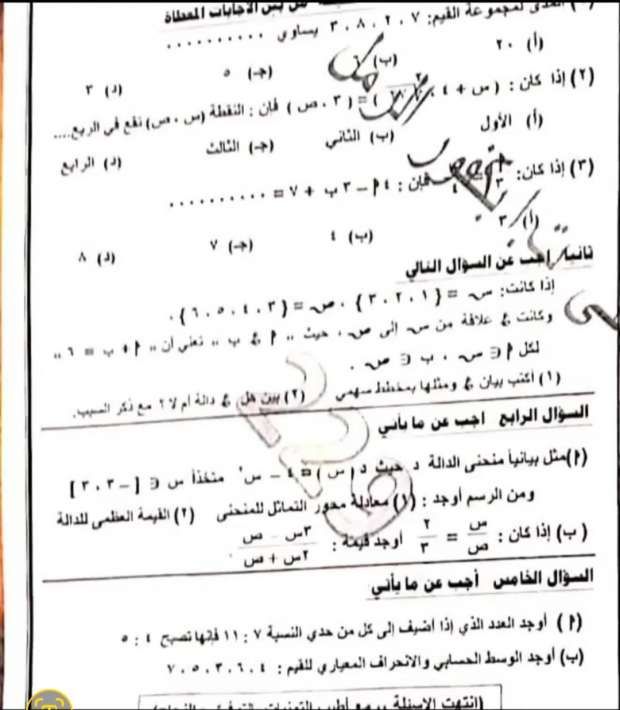 من بين الاجابات المعطاة
المدى لمجموعة القيم: ٧ ، ٢ ، ٨ ، ٣ يساوي ..........
(أ) ٢٠ (ب) ٦ (جـ) ٥ (د) ٣
(٢) إذا كان : ( س + ٤ ، ) = ( ٣ ، ص ) فإن : النقطة (س ، ص) تقع في الربع....
(أ) الأول (ب) الثاني (جـ) الثالث (د) الرابع
(٣) إذا كان: فإن : ٤ ﺃ − ٣ ب + ٧ = ..........
(أ) ٣ (ب) ٤ (جـ) ٧ (د) ٨
ثانيا: اجب عن السؤال التالي
إذا كانت : س = { ١ ، ٢ ، ٣ } ، ص = { ٣ ، ٤ ، ٥ ، ٦ } .
وكانت ع علاقة من س إلى ص ، حيث ,, ﺃ ع ب ,, تعني أن ,, ﺃ + ب = ٦ ,,
لكل ﺃ ∈ س ، ب ∈ ص .
(١) أكتب بيان ع ومثلها بمخطط سهمي (٢) بين هل ع دالة أم لا ؟ مع ذكر السبب.
السؤال الرابع اجب عن ما يأتي
(ﺃ) مثل بيانياً منحنى الدالة د حيث د ( س ) = ٤ − س٢ متخذاً س ∈ [ −٣ ، ٣ ]
ومن الرسم أوجد : (١) معادلة محور التماثل للمنحنى (٢) القيمة العظمى للدالة
( ب ) إذا كان : س/ص = ٢/٣ أوجد قيمة : ٣س − ص / ٢س + ص
السؤال الخامس أجب عن ما يأتي
(ﺃ) أوجد العدد الذي إذا أضيف إلى كل من حدي النسبة ٧ : ١١ فإنها تصبح ٤ : ٥
(ب) أوجد الوسط الحسابي والانحراف المعياري للقيم : ٤ ، ٦ ، ٣ ، ٥ ، ٧
(انتهت الاسئلة .. مع أطيب التمنيات